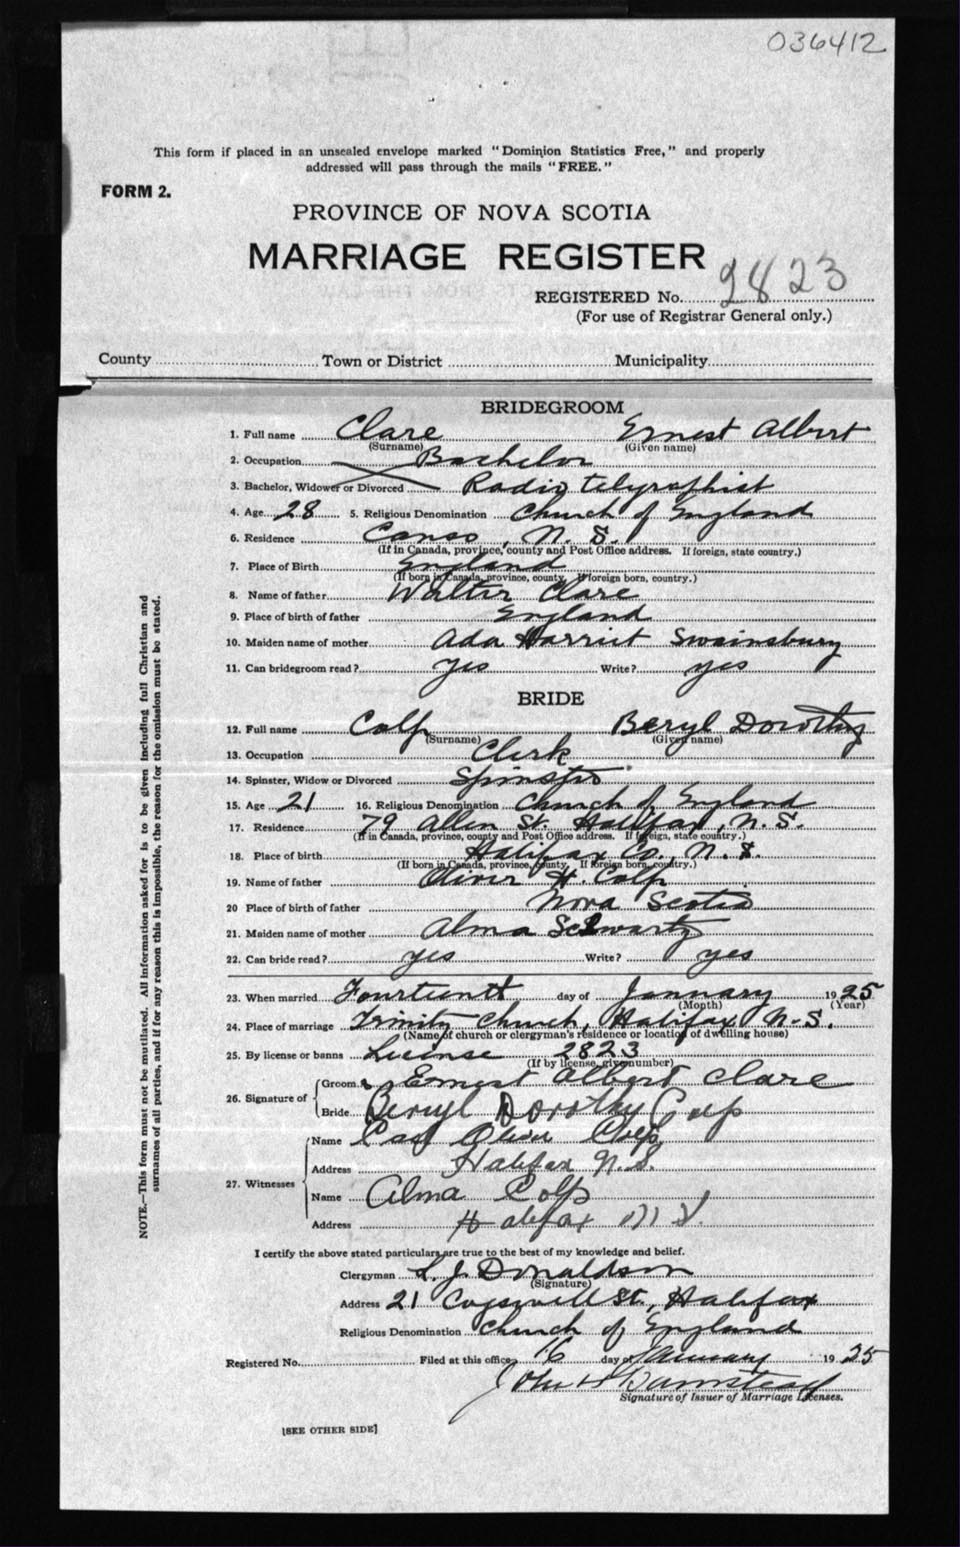 036412
This form if placed in an unsealed envelope marked "Dominion Statistics Free," and properly
addressed will pass through the mails "FREE."
FORM 2.
PROVINCE OF NOVA SCOTIA
MARRIAGE REGISTER
REGISTERED No. 2823
(For use of Registrar General only.)
County Town or District Municipality
BRIDEGROOM
1. Full name Clare Ernest Albert
(Surname) (Given name)
2. Occupation Bachelor
3. Bachelor, Widower or Divorced Radio Telegraphist
4. Age 28 5. Religious Denomination Church of England
6. Residence Canso, N. S.
(If in Canada, province, county and Post Office address. If foreign, state country.)
7. Place of Birth England
(If born in Canada, province, county. If foreign born, country.)
8. Name of father Walter Clare
9. Place of birth of father England
10. Maiden name of mother Ada Harriet Swainsbury
11. Can bridegroom read? yes Write? yes
BRIDE
12. Full name Colp Beryl Dorothy
(Surname) (Given name)
13. Occupation Clerk
14. Spinster, Widow or Divorced Spinster
15. Age 21 16. Religious Denomination Church of England
17. Residence 79 Allen St. Halifax, N. S.
(If in Canada, province, county and Post Office address. If foreign, state country.)
18. Place of birth Halifax Co., N. S.
(If born in Canada, province, county. If foreign born, country.)
19. Name of father Oliver H. Colp
20 Place of birth of father Nova Scotia
21. Maiden name of mother Alma Schwartz
22. Can bride read? yes Write? yes
23. When married Fourteenth day of January 1925
(Month) (Year)
24. Place of marriage Trinity Church, Halifax N.S.
(Name of church or clergyman's residence or location of dwelling house)
25. By license or banns License 2823
(If by license, give number)
26. Signature of Groom Ernest Albert Clare
Bride Beryl Dorothy Colp
27. Witnesses Name Oliver Colp
Address Halifax N.S.
Name Alma Colp
Address Halifax N S.
I certify the above stated particulars are true to the best of my knowledge and belief.
Clergyman L. J. Donaldson
(Signature)
Address 21 Cogswell St., Halifax
Religious Denomination Church of England
Registered No. Filed at this office 16 day of January 1925
John
Signature of Issuer of Marriage Licenses.
[SEE OTHER SIDE]
NOTE.—This form must not be mutilated. All information asked for is to be given including full Christian and
surnames of all parties, and if for any reason this is impossible, the reason for the omission must be stated.